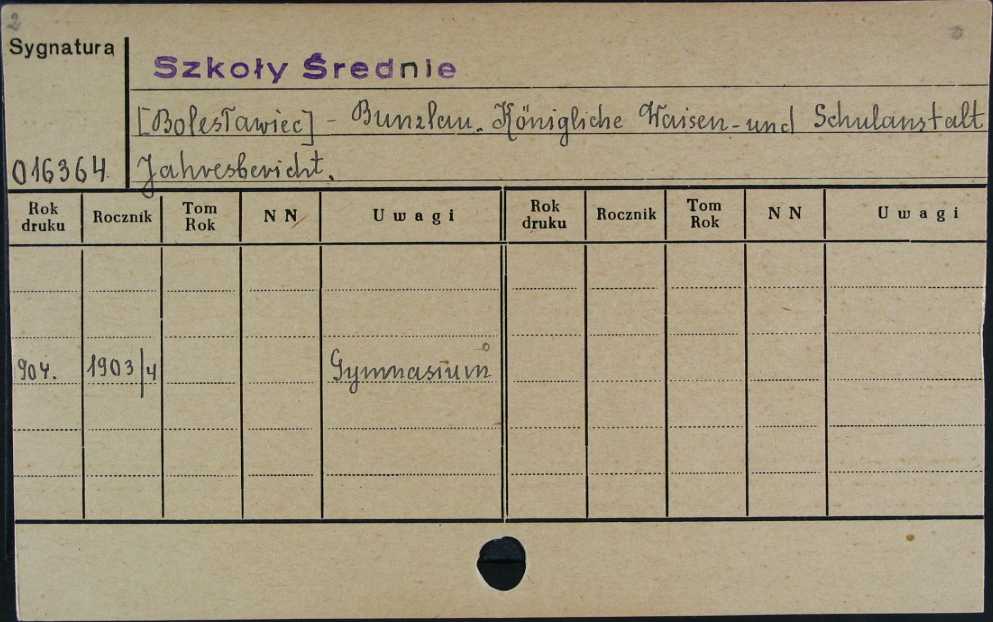 2
Sygnatura
Szkoły Średnie
[Bolesławiec] - Bunzlau. Königliche Waisen- und Schulanstalt
016364. Jahresbericht.
Rok druku Rocznik Tom Rok NN Uwagi Rok druku Rocznik Tom Rok NN Uwagi
904. 1903/4 Gymnasium